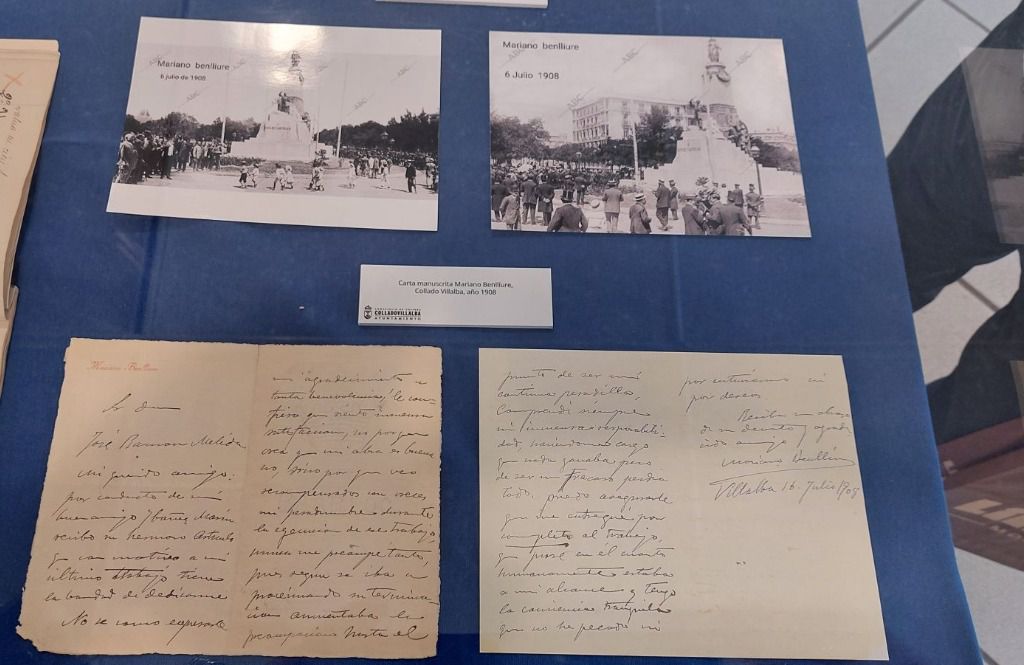 Mariano benlliure
6 julio de 1908
ABC
ABC
ABC
Mariano benlliure
6 Julio 1908
ABC
ABC
ABC
Carta manuscrita Mariano Benlliure,
Collado Villalba, año 1908
COLLADOVILLALBA
AYUNTAMIENTO
Mariano Benlliure
Sr Don
José Ramon Melida
Mi querido amigo:
por conducto de mi
buen amigo Ibañez Marín
recibo su hermoso Articulo
que con motivo a mi
último trabajo tiene
la bondad de dedicarme
No se como expresarle
mi agradecimiento a
tanta benevolencia; le con-
fieso que siento inmensa
satisfacción, no porque
crea que mi obra es buena
no, sino por que veo
recompensados con creces
mi pesadumbre durante
la ejecución de ese trabajo,
nunca me preocupé tanto,
pues segun se iba a
proximando su termina-
ción aumentaba la
preocupación hasta el
punto de ser mi
continua pesadilla,
Comprendí siempre
mi inmensa responsabili-
dad, haciendome cargo
que nada ganaba pero
de ser un fracaso perdia
todo, puedo asegurarle
que me entregué por
completo al trabajo,
que puse en el cuanto
humanamente estaba
a mi alcance y tengo
la conciencia tranquila
que no he pecado ni
por entusiasmo ni
por deseos
Reciba un abrazo
de su devoto y agrade-
cido amigo
Mariano Benlliure
Villalba 16. Julio 1908